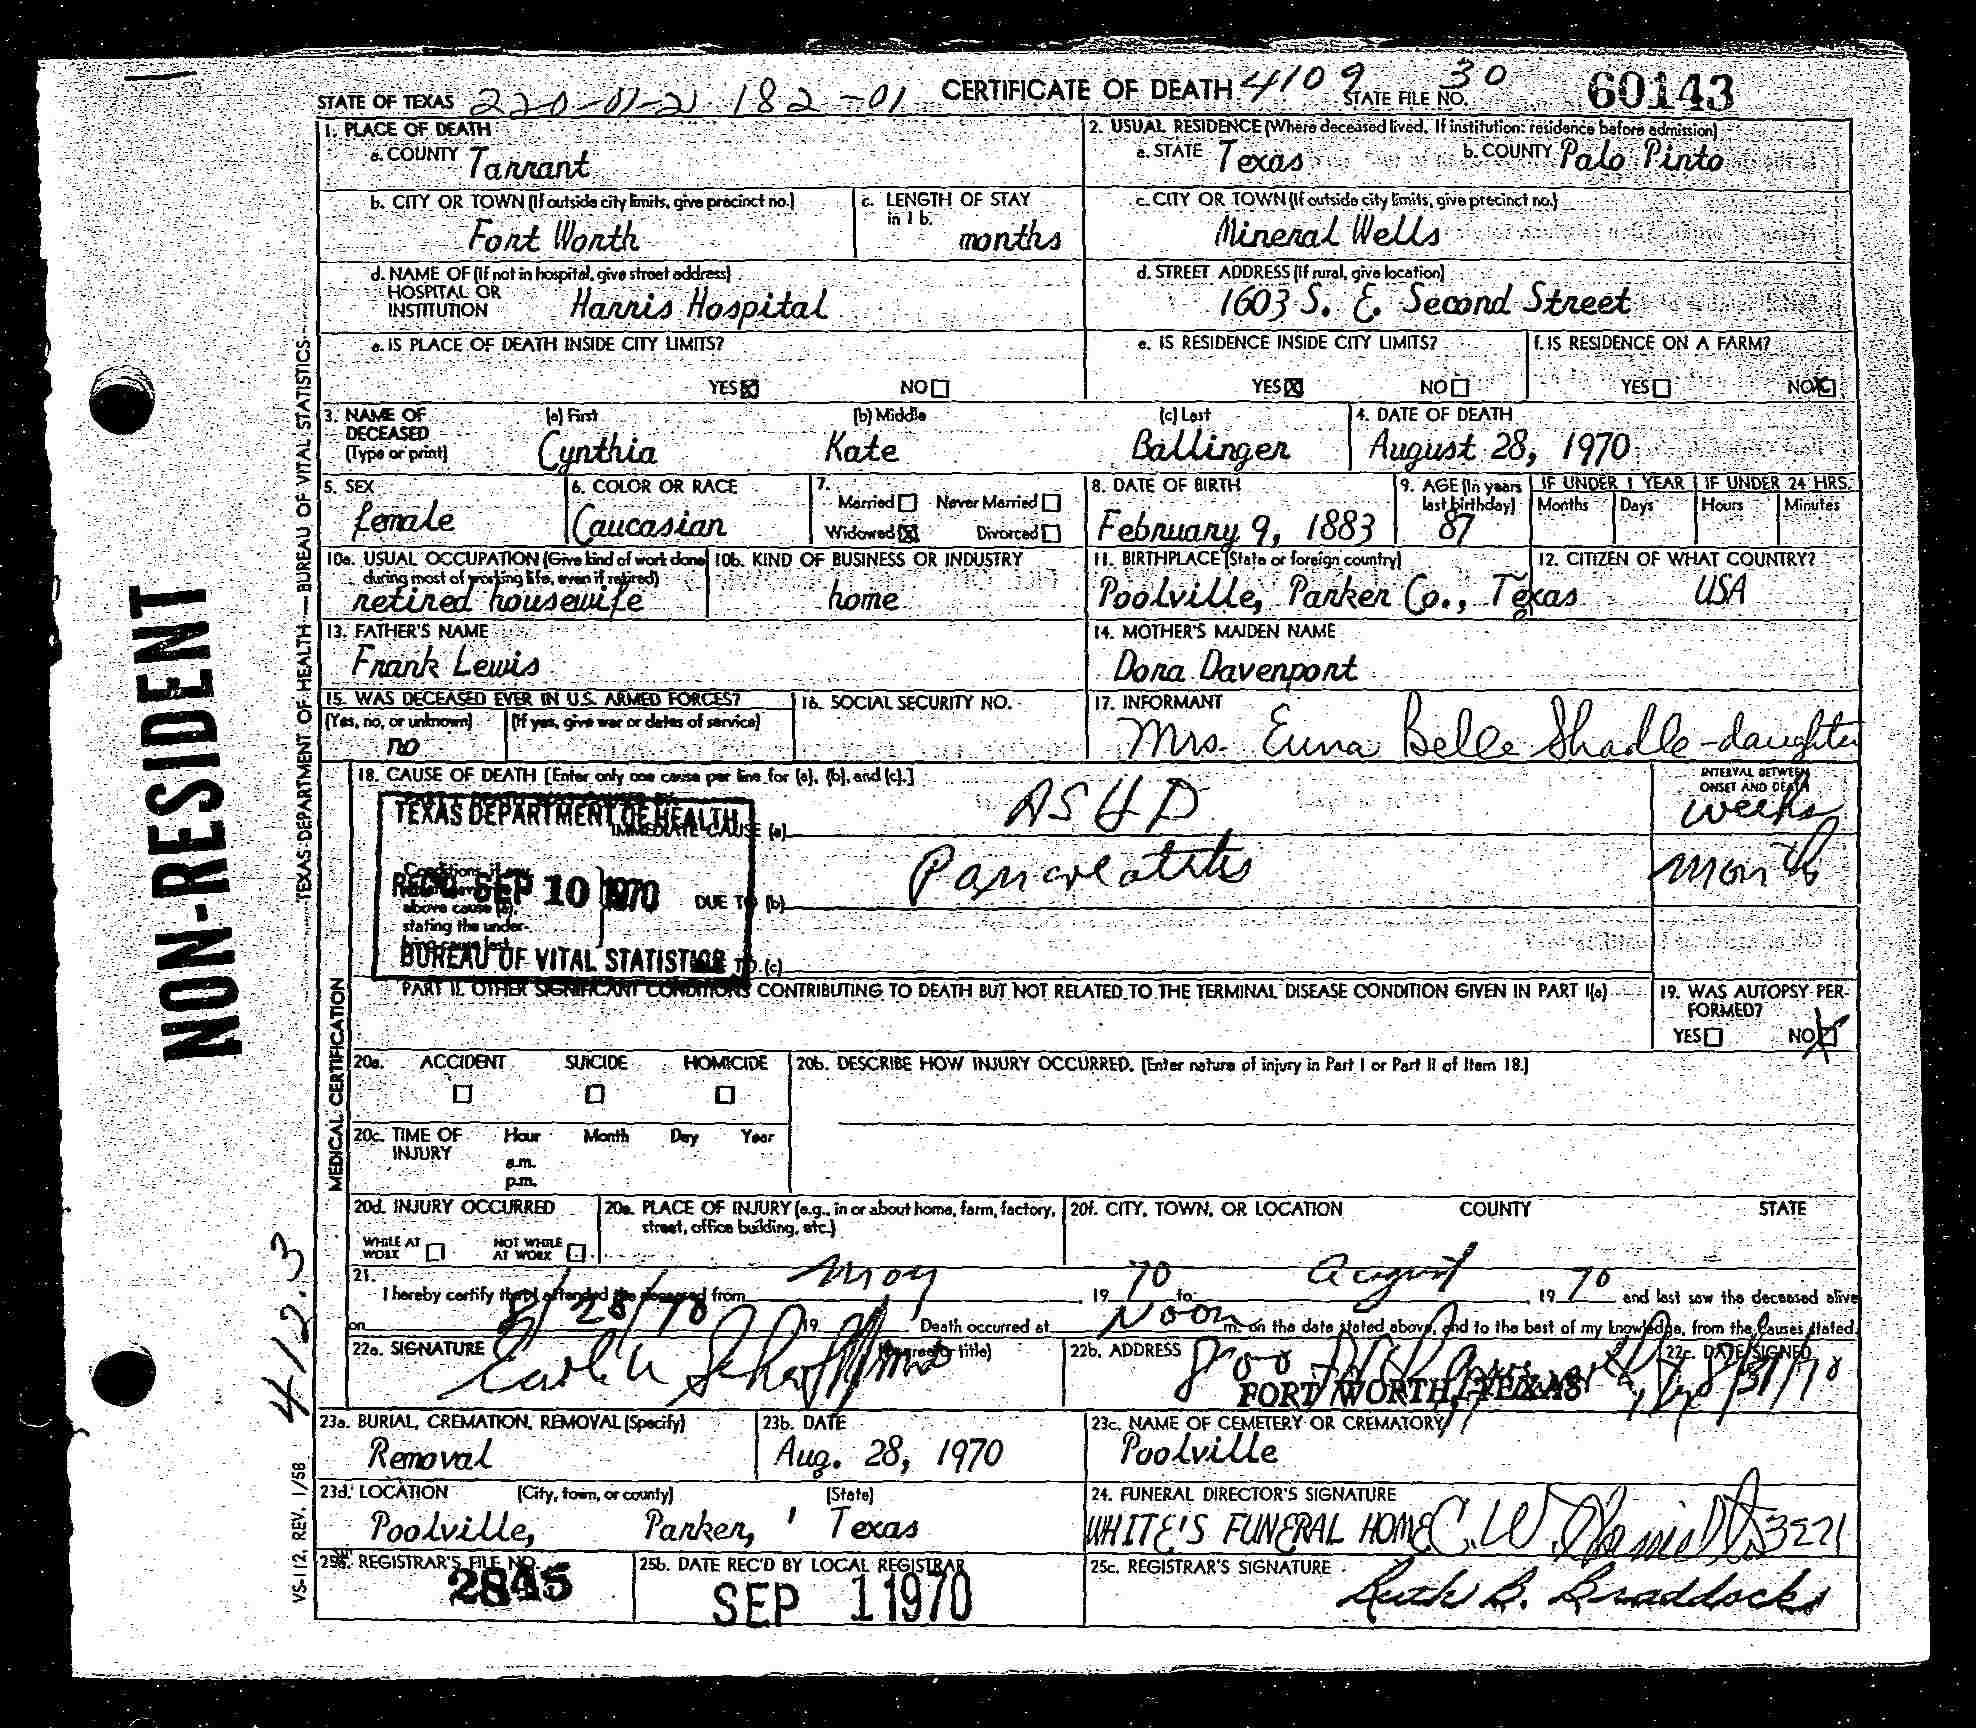 STATE OF TEXAS 220-01-21 182-01 CERTIFICATE OF DEATH 4109 30 STATE FILE NO. 60143
1. PLACE OF DEATH
a. COUNTY Tarrant
2. USUAL RESIDENCE (Where deceased lived. If institution: residence before admission)
a. STATE Texas b. COUNTY Palo Pinto
b. CITY OR TOWN (If outside city limits, give precinct no.)
Fort Worth
c. LENGTH OF STAY in 1 b.
months
c. CITY OR TOWN (If outside city limits, give precinct no.)
Mineral Wells
d. NAME OF (If not in hospital, give street address)
HOSPITAL OR
INSTITUTION Harris Hospital
d. STREET ADDRESS (If rural, give location)
1603 S. E. Second Street
e. IS PLACE OF DEATH INSIDE CITY LIMITS?
YES NO
e. IS RESIDENCE INSIDE CITY LIMITS?
YES NO
f. IS RESIDENCE ON A FARM?
YES NO
3. NAME OF DECEASED (Type or print)
(a) First (b) Middle (c) Last
Cynthia Kate Ballinger
4. DATE OF DEATH
August 28, 1970
5. SEX
female
6. COLOR OR RACE
Caucasian
7.
Married Never Married
Widowed Divorced
8. DATE OF BIRTH
February 9, 1883
9. AGE (In years last birthday)
87
IF UNDER 1 YEAR IF UNDER 24 HRS.
Months Days Hours Minutes
10a. USUAL OCCUPATION (Give kind of work done during most of working life, even if retired)
retired housewife
10b. KIND OF BUSINESS OR INDUSTRY
home
11. BIRTHPLACE (State or foreign country)
Poolville, Parker Co., Texas
12. CITIZEN OF WHAT COUNTRY?
USA
13. FATHER'S NAME
Frank Lewis
14. MOTHER'S MAIDEN NAME
Dora Davenport
15. WAS DECEASED EVER IN U.S. ARMED FORCES?
(Yes, no, or unknown) (If yes, give war or dates of service)
no
16. SOCIAL SECURITY NO.
17. INFORMANT
Mrs. Euna Belle Shadle-daughter
18. CAUSE OF DEATH [Enter only one cause per line for (a), (b), and (c).]
INTERVAL BETWEEN
ONSET AND DEATH
TEXAS DEPARTMENT OF HEALTH
IMMEDIATE CAUSE (a) ASHD weeks
Conditions, if any,
REC'D SEP 10 1970
above cause (a),
stating the under-
lying cause last.
DUE TO (b) Pancreatitis month
BUREAU OF VITAL STATISTICS
DUE TO (c)
PART II. OTHER SIGNIFICANT CONDITIONS CONTRIBUTING TO DEATH BUT NOT RELATED TO THE TERMINAL DISEASE CONDITION GIVEN IN PART I(a)
19. WAS AUTOPSY PER-
FORMED?
YES NO
20a. ACCIDENT SUICIDE HOMICIDE
20b. DESCRIBE HOW INJURY OCCURRED. (Enter nature of injury in Part I or Part II of Item 18.)
20c. TIME OF INJURY Hour Month Day Year
a.m.
p.m.
20d. INJURY OCCURRED
WHILE AT WORK NOT WHILE AT WORK
20e. PLACE OF INJURY (e.g., in or about home, farm, factory, street, office building, etc.)
20f. CITY, TOWN, OR LOCATION COUNTY STATE
21.
I hereby certify that I attended the deceased from May 1970 to August 1970 and last saw the deceased alive
on 8/28/70 19 Death occurred at Noon m. on the date stated above, and to the best of my knowledge, from the causes stated.
22a. SIGNATURE (Degree or title)
22b. ADDRESS
FORT WORTH, TEXAS
22c. DATE SIGNED
8/31/70
23a. BURIAL, CREMATION, REMOVAL (Specify)
Removal
23b. DATE
Aug. 28, 1970
23c. NAME OF CEMETERY OR CREMATORY
Poolville
23d. LOCATION (City, town, or county) (State)
Poolville, Parker, Texas
24. FUNERAL DIRECTOR'S SIGNATURE
WHITE'S FUNERAL HOME C.W. 3221
25a. REGISTRAR'S FILE NO.
2845
25b. DATE REC'D BY LOCAL REGISTRAR
SEP 1 1970
25c. REGISTRAR'S SIGNATURE
Ruth B. Braddocks
NON-RESIDENT
TEXAS DEPARTMENT OF HEALTH — BUREAU OF VITAL STATISTICS
MEDICAL CERTIFICATION
412.3
VS-112, REV. 1/58